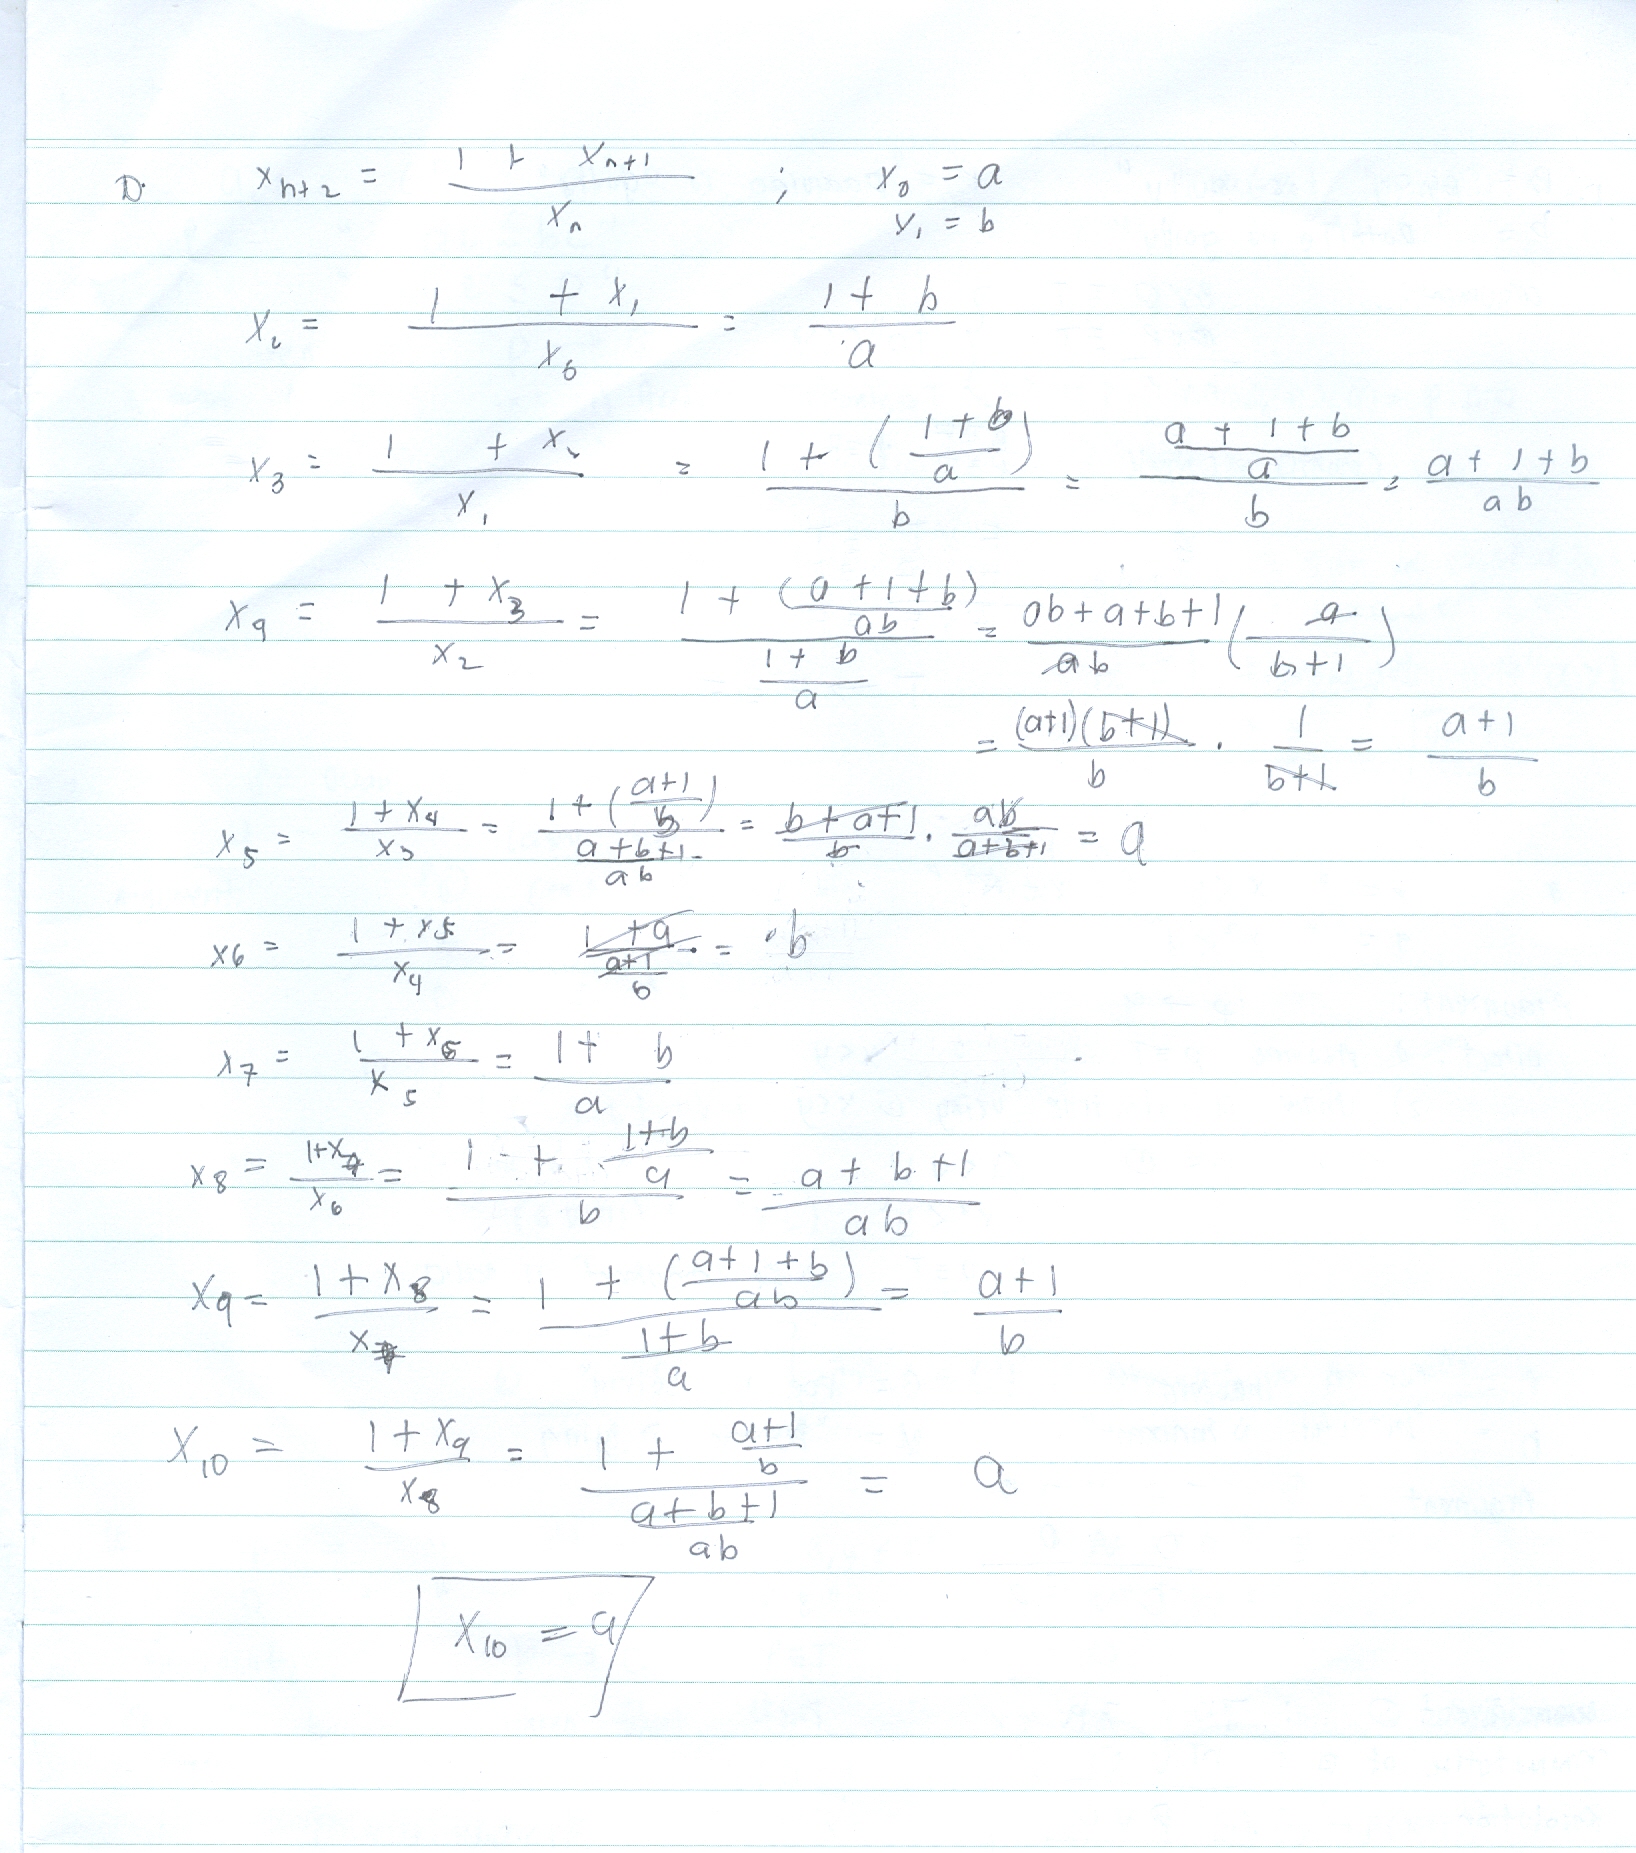 D. x_{n+2} = \frac{1 + x_{n+1}}{x_n} ; x_0 = a
x_1 = b
x_2 = \frac{1 + x_1}{x_0} = \frac{1 + b}{a}
x_3 = \frac{1 + x_2}{x_1} = \frac{1 + (\frac{1+b}{a})}{b} = \frac{\frac{a+1+b}{a}}{b} = \frac{a+1+b}{ab}
x_4 = \frac{1 + x_3}{x_2} = \frac{1 + \frac{(a+1+b)}{ab}}{\frac{1+b}{a}} = \frac{ab+a+b+1}{ab} (\frac{a}{b+1})
= \frac{(a+1)(b+1)}{b} \cdot \frac{1}{b+1} = \frac{a+1}{b}
x_5 = \frac{1+x_4}{x_3} = \frac{1+(\frac{a+1}{b})}{\frac{a+b+1}{ab}} = \frac{b+a+1}{b} \cdot \frac{ab}{a+b+1} = a
x_6 = \frac{1+x_5}{x_4} = \frac{1+a}{\frac{a+1}{b}} = b
x_7 = \frac{1+x_6}{x_5} = \frac{1+b}{a}
x_8 = \frac{1+x_7}{x_6} = \frac{1+\frac{1+b}{a}}{b} = \frac{a+b+1}{ab}
x_9 = \frac{1+x_8}{x_7} = \frac{1+(\frac{a+1+b}{ab})}{\frac{1+b}{a}} = \frac{a+1}{b}
x_{10} = \frac{1+x_9}{x_8} = \frac{1+\frac{a+1}{b}}{\frac{a+b+1}{ab}} = a
x_{10} = a